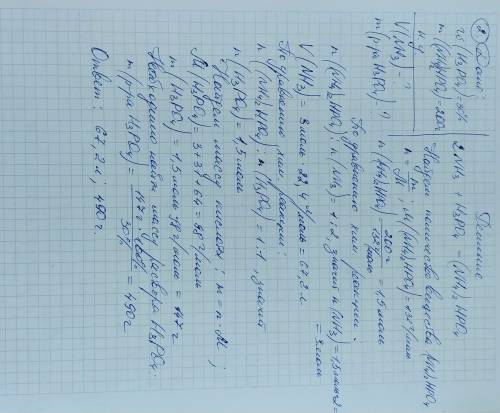 ② Дано:
w(H3PO4) 30%
m((NH4)2HPO4) = 200г
н.у.
V(NH3) - ?
m(р-ра H3PO4) - ?
Решение
2NH3 + H3PO4 - (NH4)2HPO4
Найдем количество вещества (NH4)2HPO4
n = m/M; M((NH4)2HPO4) = 132 г/моль
n((NH4)2HPO4) = 200г / 132 г/моль = 1,5 моль
По уравнению хим. реакции:
n((NH4)2HPO4) : n(NH3) = 1:2, значит n(NH3) = 1,5 моль·2 =
= 3 моль
V(NH3) = 3 моль · 22,4 л/моль = 67,2 л
По уравнению хим. реакции:
n((NH4)2HPO4) : n(H3PO4) = 1:1, значит
n(H3PO4) = 1,5 моль
Найдем массу кислоты: m = n·M;
M(H3PO4) = 3+31+64 = 98 г/моль
m(H3PO4) = 1,5 моль · 98 г/моль = 147 г
Необходимо найти массу раствора H3PO4:
m(р-ра H3PO4) = 147 г · 100% / 30% = 490г
Ответ: 67,2 л; 490 г.